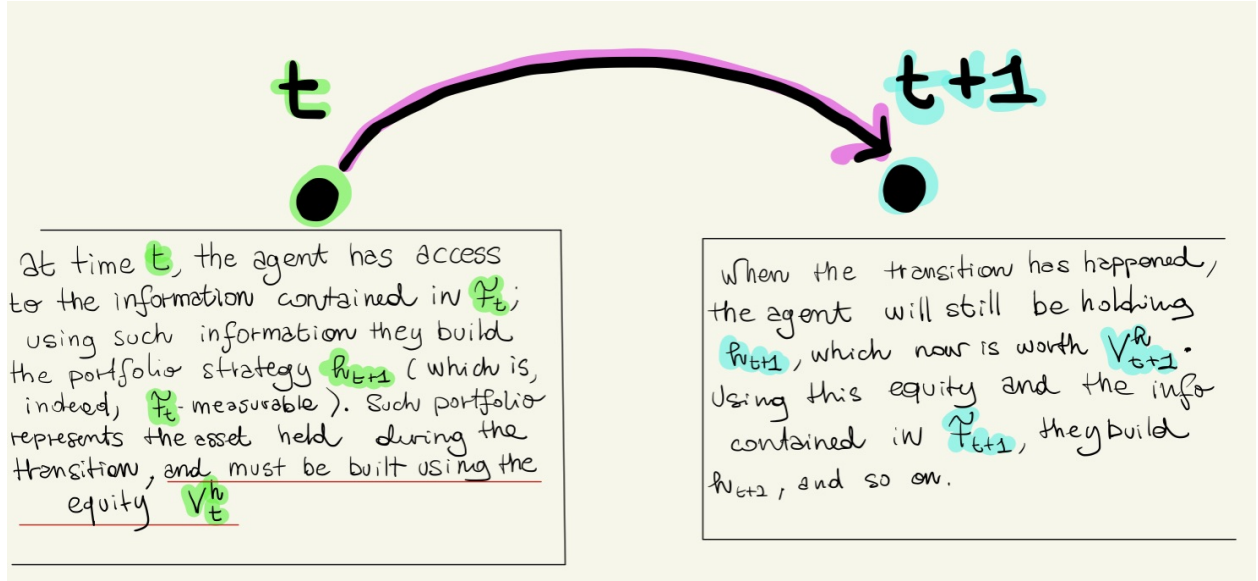 t
t+1
at time t, the agent has access
to the information contained in F̃_t;
using such information they build
the portfolio strategy h_{t+1} (which is,
indeed, F̃_t-measurable). Such portfolio
represents the asset held during the
transition, and must be built using the
equity V_t^h
When the transition has happened,
the agent will still be holding
h_{t+1}, which now is worth V_{t+1}^h.
Using this equity and the info
contained in F̃_{t+1}, they build
h_{t+2}, and so on.